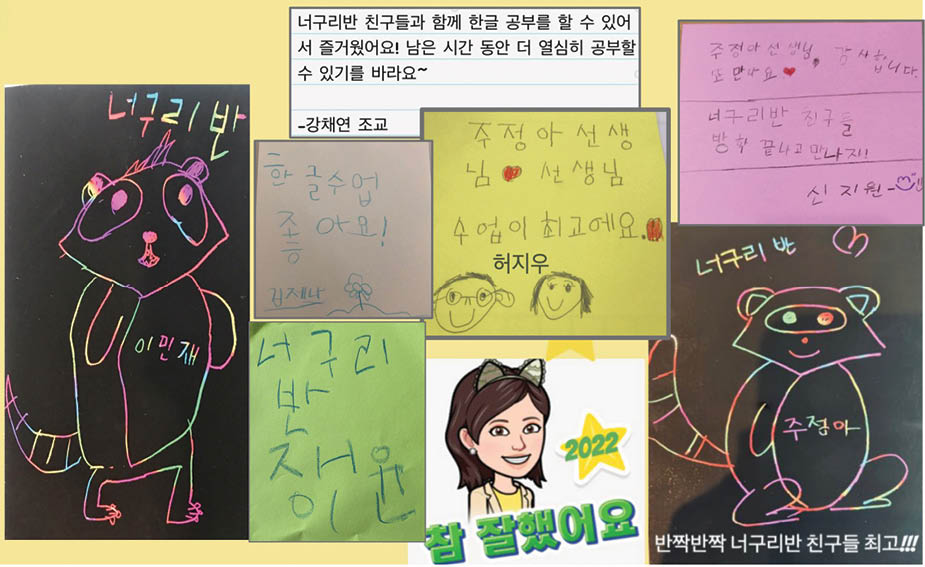 너구리반 친구들과 함께 한글 공부를 할 수 있어
서 즐거웠어요! 남은 시간 동안 더 열심히 공부할
수 있기를 바라요~
-강채연 조교
주정아 선생님, 감사합니다.
또 만나요
너구리반 친구들
방학 끝나고 만나자!
신지원-
너구리 반
이민재
한글수업
좋아요!
김제나
주정아 선생
님 선생님
수업이 최고에요.
허지우
너구리
반
너구리 반
주정아
2022
참 잘했어요
반짝반짝 너구리반 친구들 최고!!!